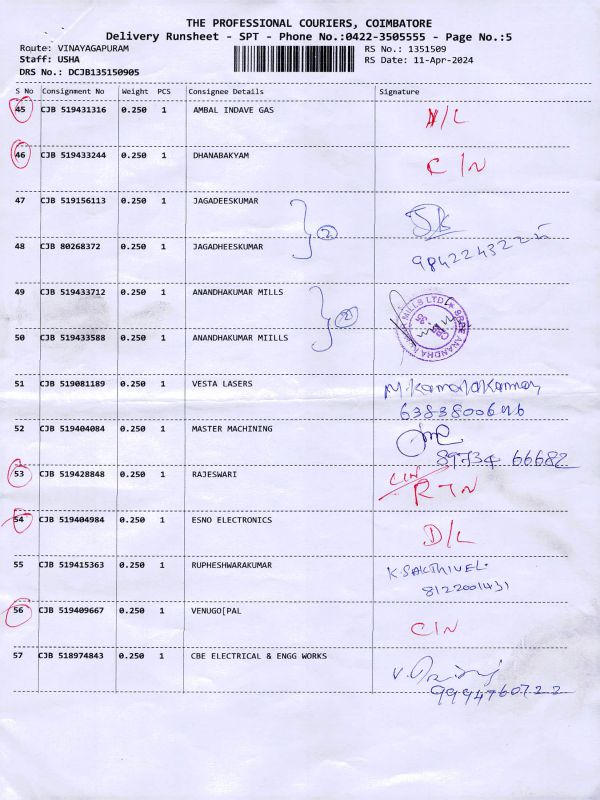 THE PROFESSIONAL COURIERS, COIMBATORE
Delivery Runsheet - SPT - Phone No.:0422-3505555 - Page No.:5
Route: VINAYAGAPURAM RS No.: 1351509
Staff: USHA RS Date: 11-Apr-2024
DRS No.: DCJB135150905
S No Consignment No Weight PCS Consignee Details Signature
45 CJB 519431316 0.250 1 AMBAL INDAVE GAS D/L
46 CJB 519433244 0.250 1 DHANABAKYAM C/N
47 CJB 519156113 0.250 1 JAGADEESKUMAR
2
48 CJB 80268372 0.250 1 JAGADHEESKUMAR
49 CJB 519433712 0.250 1 ANANDHAKUMAR MILLS
2 SREE ANANDHA MILLS LTD
50 CJB 519433588 0.250 1 ANANDHAKUMAR MIILLS
51 CJB 519081189 0.250 1 VESTA LASERS
52 CJB 519404084 0.250 1 MASTER MACHINING
89734 66682
53 CJB 519428848 0.250 1 RAJESWARI RTN
54 CJB 519404984 0.250 1 ESNO ELECTRONICS D/L
55 CJB 519415363 0.250 1 RUPHESHWARAKUMAR K.SAKTHIVEL.
8122001431
56 CJB 519409667 0.250 1 VENUGO[PAL C/N
57 CJB 518974843 0.250 1 CBE ELECTRICAL & ENGG WORKS
9994760722